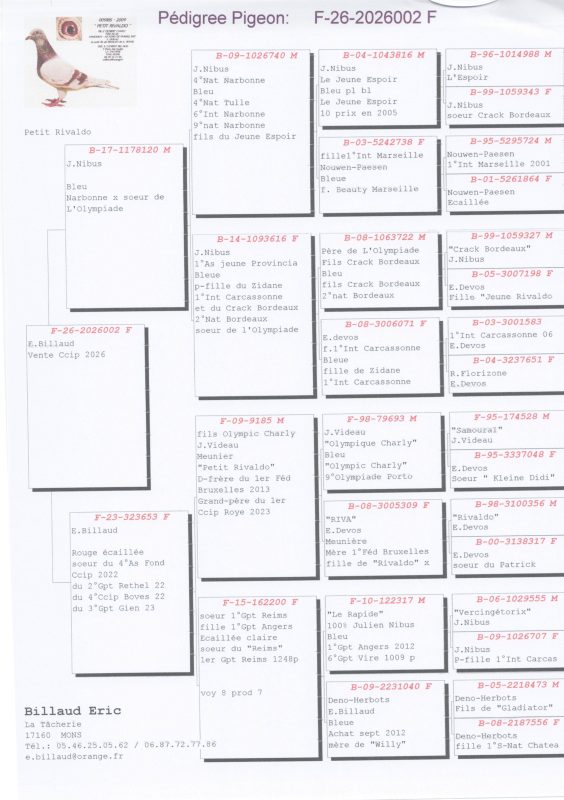 Pédigree Pigeon: F-26-2026002 F
"PETIT RIVALDO"
Petit Rivaldo
B-17-1178120 M
J.Nibus
Bleu
Narbonne x soeur de
L'Olympiade
F-26-2026002 F
E.Billaud
Vente Ccip 2026
F-23-323653 F
E.Billaud
Rouge écaillée
soeur du 4°As Fond
Ccip 2022
du 2°Gpt Rethel 22
du 4°Ccip Boves 22
du 3°Gpt Gien 23
B-09-1026740 M
J.Nibus
4°Nat Narbonne
Bleu
4°Nat Tulle
6°Int Narbonne
9°nat Narbonne
fils du Jeune Espoir
B-14-1093616 F
J.Nibus
1°As jeune Provincia
Bleue
p-fille du Zidane
1°Int Carcassonne
et du Crack Bordeaux
2°Nat Bordeaux
soeur de l'Olympiade
F-09-9185 M
fils Olympic Charly
J.Videau
Meunier
"Petit Rivaldo"
D-frère du 1er Féd
Bruxelles 2013
Grand-père du 1er
Ccip Roye 2023
F-15-162200 F
soeur 1°Gpt Reims
fille 1°Gpt Angers
Ecaillée claire
soeur du "Reims"
1er Gpt Reims 1248p
voy 8 prod 7
B-04-1043816 M
J.Nibus
Le Jeune Espoir
Bleu pl bl
Le Jeune Espoir
10 prix en 2005
B-03-5242738 F
fille1°Int Marseille
Nouwen-Paesen
Bleue
f. Beauty Marseille
B-08-1063722 M
Père de L'Olympiade
Fils Crack Bordeaux
Bleu
fils Crack Bordeaux
2°nat Bordeaux
B-08-3006071 F
E.devos
f.1°Int Carcassonne
Bleue
fille de Zidane
1°Int Carcassonne
F-98-79693 M
J.Videau
"Olympique Charly"
Bleu
"Olympic Charly"
9°Olympiade Porto
B-08-3005309 F
"RIVA"
E.Devos
Meunière
Mère 1°Féd Bruxelles
fille de "Rivaldo" x
F-10-122317 M
"Le Rapide"
100% Julien Nibus
Bleu
1°Gpt Angers 2012
6°Gpt Vire 1009 p
B-09-2231040 F
Deno-Herbots
E.Billaud
Bleue
Achat sept 2012
mère de "Willy"
B-96-1014988 M
J.Nibus
L'Espoir
B-99-1059343 F
J.Nibus
soeur Crack Bordeaux
B-95-5295724 M
Nouwen-Paesen
1°Int Marseille 2001
B-01-5261864 F
Nouwen-Paesen
Ecaillée
B-99-1059327 M
"Crack Bordeaux"
J.Nibus
B-05-3007198 F
E.Devos
Fille "Jeune Rivaldo
B-03-3001583
1°Int Carcassonne 06
E.Devos
B-04-3237651 F
R.Florizone
E.Devos
F-95-174528 M
"Samouraï"
J.Videau
B-95-3337048 F
E.Devos
Soeur " Kleine Didi"
B-98-3100356 M
"Rivaldo"
E.Devos
B-00-3138317 F
E.Devos
soeur du Patrick
B-06-1029555 M
"Vercingétorix"
J.Nibus
B-09-1026707 F
J.Nibus
P-fille 1°Int Carcas
B-05-2218473 M
Deno-Herbots
Fils de "Gladiator"
B-08-2187556 F
Deno-Herbots
fille 1°S-Nat Chatea
Billaud Eric
La Tâcherie
17160 MONS
Tél.: 05.46.25.05.62 / 06.87.72.77.86
e.billaud@orange.fr